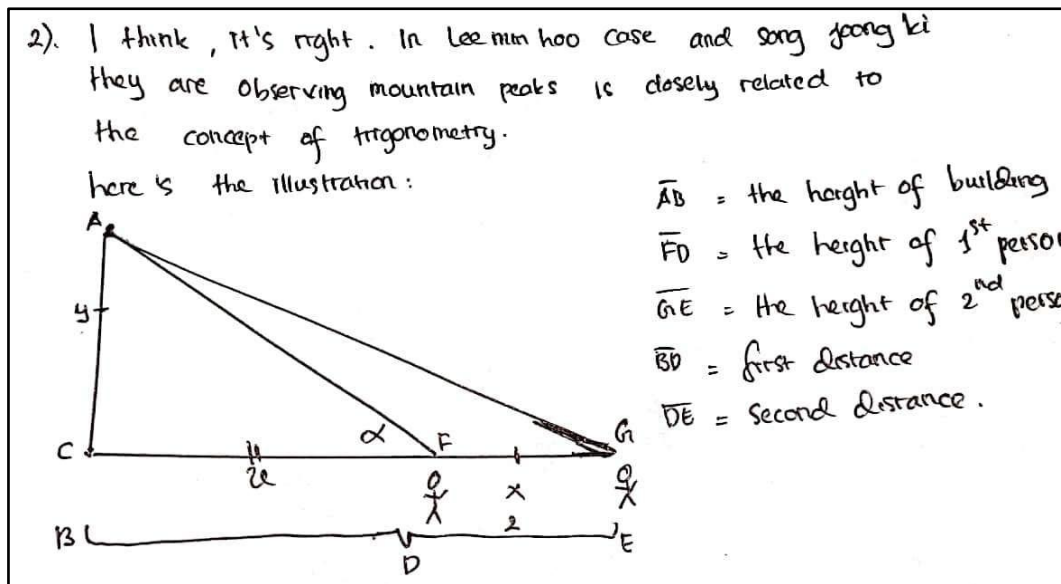 2). I think, it's right. In Lee min hoo case and song joong ki
they are observing mountain peaks is closely related to
the concept of trigonometry.
here's the illustration:
A
y
C
α
F
G
x
2
B
D
E
AB = the height of building
FD = the height of 1st person
GE = the height of 2nd perso
BD = first distance
DE = second distance.